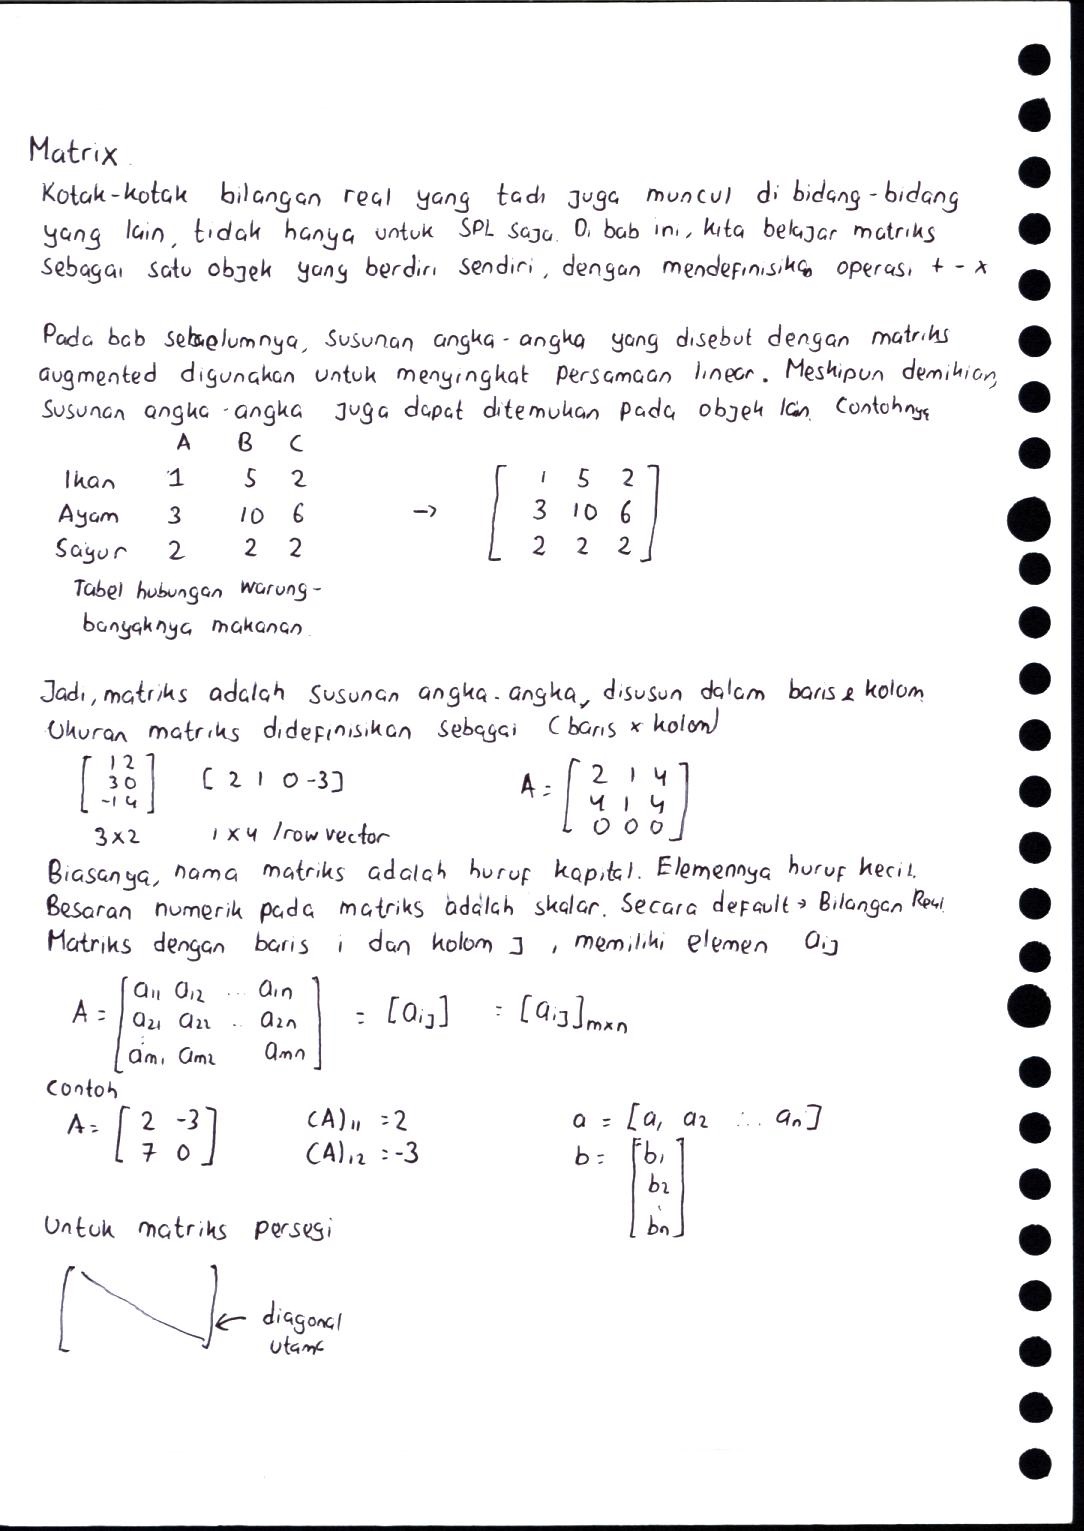 Matrix
Kotak-kotak bilangan real yang tadi juga muncul di bidang-bidang
yang lain, tidak hanya untuk SPL saja. Di bab ini, kita belajar matriks
sebagai satu objek yang berdiri sendiri, dengan mendefinisikan operasi + - x
Pada bab sebelumnya, susunan angka-angka yang disebut dengan matriks
augmented digunakan untuk menyingkat persamaan linear. Meskipun demikian,
susunan angka-angka juga dapat ditemukan pada objek lain. Contohnya
A B C
Ikan 1 5 2
Ayam 3 10 6
Sayur 2 2 2
→ [ 1 5 2
3 10 6
2 2 2 ]
Tabel hubungan warung-
banyaknya makanan.
Jadi, matriks adalah susunan angka-angka, disusun dalam baris & kolom
Ukuran matriks didefinisikan sebagai (baris x kolom)
[ 1 2
3 0
-1 4 ]
3x2
[ 2 1 0 -3 ]
1x4 /row vector
A = [ 2 1 4
4 1 4
0 0 0 ]
Biasanya, nama matriks adalah huruf kapital. Elemennya huruf kecil.
Besaran numerik pada matriks adalah skalar. Secara default → Bilangan Real.
Matriks dengan baris i dan kolom j, memiliki elemen aij
A = [ a11 a12 ... a1n
a21 a22 .. a2n
:
am1 am2 amn ] = [aij] = [aij]mxn
contoh
A = [ 2 -3
7 0 ]
(A)11 = 2
(A)12 = -3
a = [a1 a2 ... an]
b = [ b1
b2
:
bn ]
Untuk matriks persegi
[ ] ← diagonal
utama